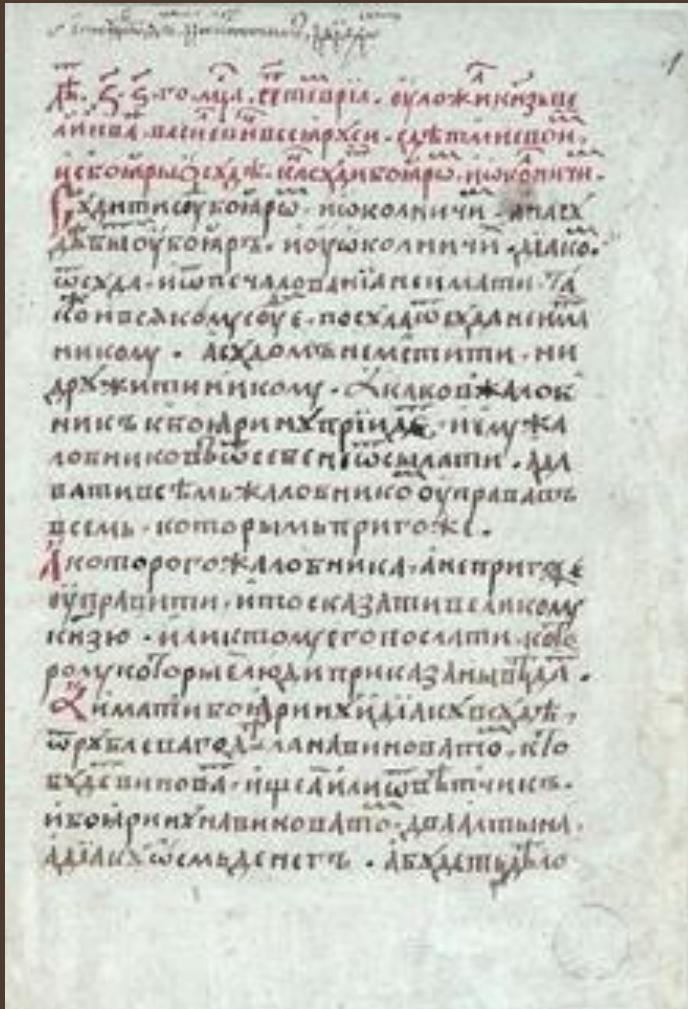 лѣ. ҂з҃. ѕ҃. го. мц҃а. септеврїа. оуложи кн҃зь ве
ликїи ива. василеви всеа рꙋси. с дѣтми свои.
и с боѧры ѡ сꙋдѣ. ка сꙋди боѧрѡ. и ѡколничи.
Сꙋдити сꙋ боѧрѡ. и ѡколничи. а на сꙋ
дѣ бы оу боѧръ. и оу ѡколничи. дїако.
ѿ сꙋда. и ѿ печалованїа не имати. та
ко и всѧкому соуе. посꙋла ѿ сꙋда не има
никому. а сꙋдомъ не мстити. ни
дрꙋжити никому. а каков жалоб
никъ к боѧринꙋ прїиде. и ему жа
лобниковъ ѿ себе не ѿсылати. а да
вати всѣмь жалобнико оуправа въ
всемь. которымь пригоже.
А которого жалобника. а не пригоже
оуправити. и то сказати великому
кнѧзю. или к тому его послати. кото
рому которые люди приказаны вѣда.
А имати боѧринꙋ и дїакꙋ в сꙋдѣ,
ѿ рꙋблеваго дѣла на виновато. кто
бꙋде винова. ищеа или ѿвѣтчикъ.
и боѧринꙋ на виновато. два алтына.
а дїакꙋ ѡсмь денегъ. а бꙋдеть дѣло